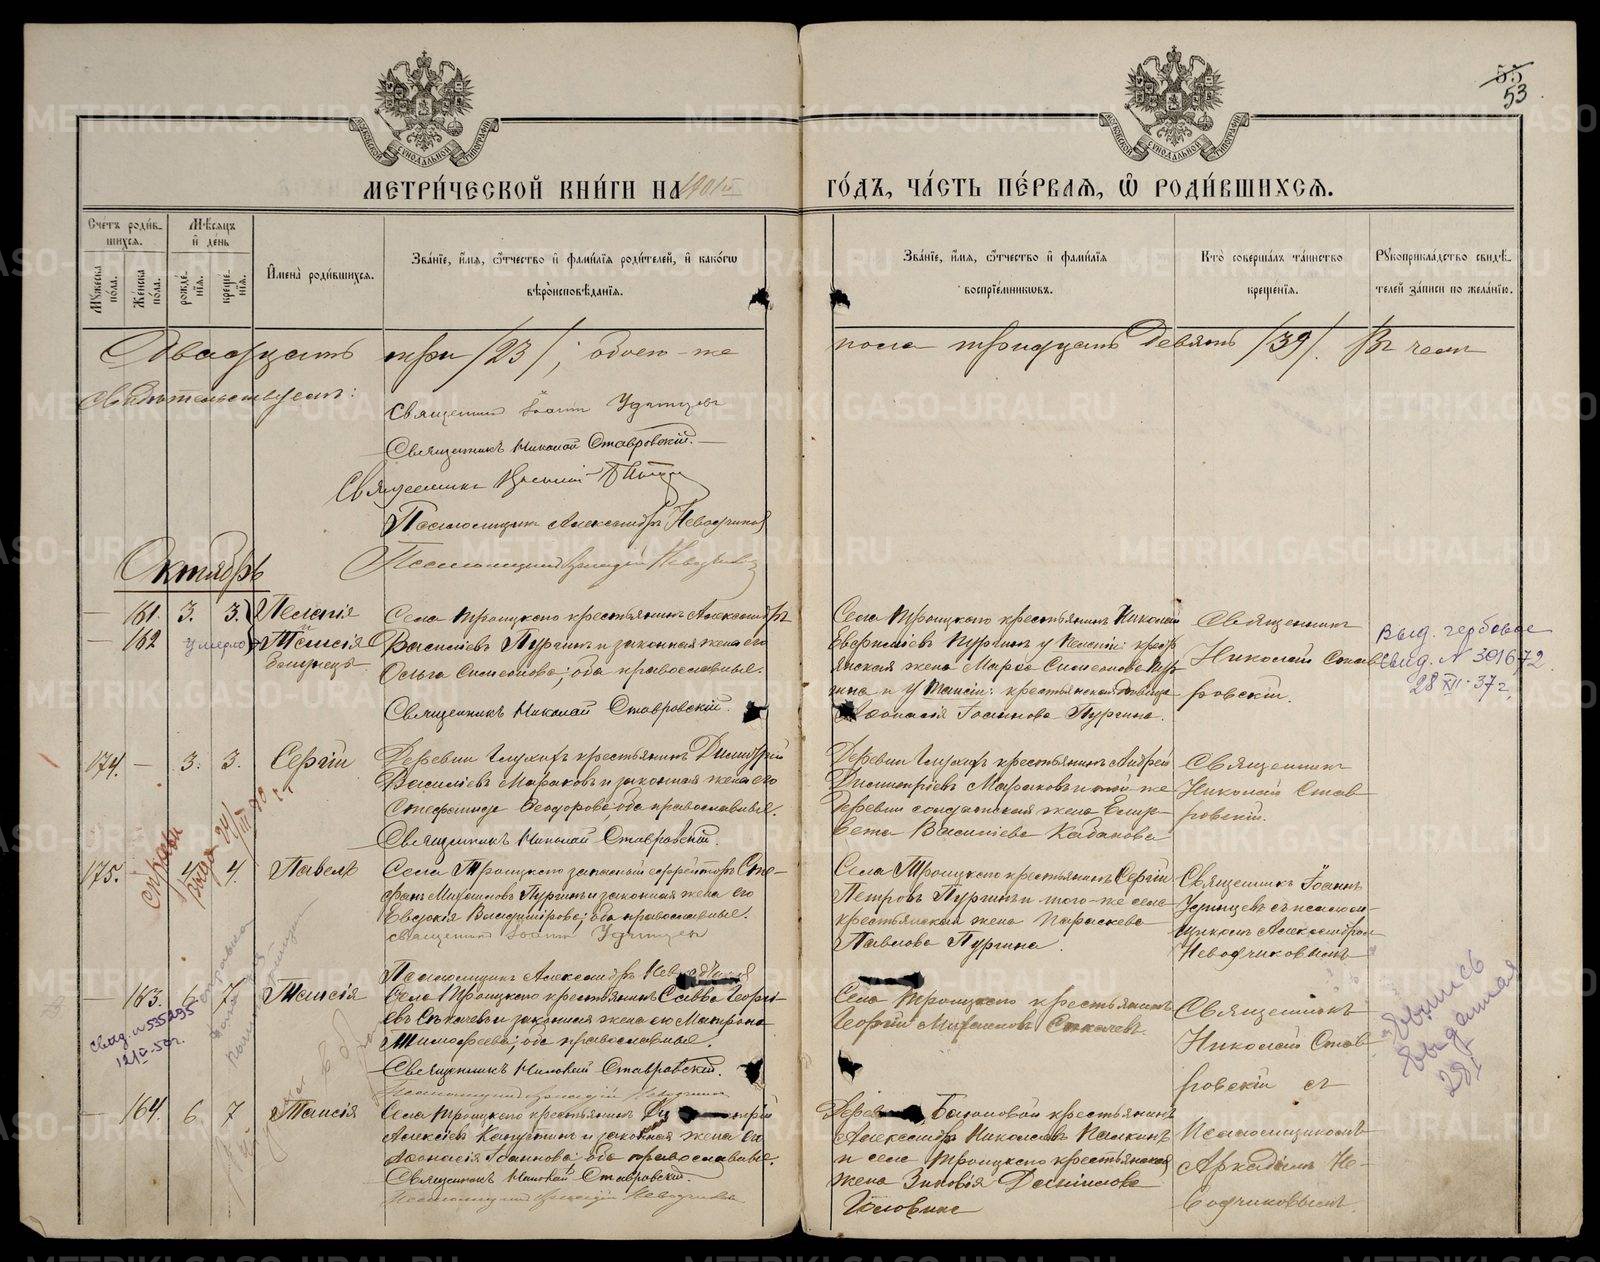 55
53
МЕТРИ́ЧЕСКОЙ КНИ́ГИ НА 1901й
ГО́ДЪ, ЧА́СТЬ ПЕ́РВАѦ, Ѡ҆ РОДИ́ВШИХСѦ.
Сче́тъ роди́в-
шихся.
Мѣ́сяцъ
и҆ де́нь
Мꙋ́жеска по́ла.
Же́нска по́ла.
рожде́нїя.
креще́нїя.
И҆мена̀ роди́вшихся.
Зва́нїе, и҆́мя, ѻ҆́тчество и҆ фами́лїя роди́телей, и҆ како́гѡ
вѣроисповѣ́данїя.
Зва́нїе, и҆́мя, ѻ҆́тчество и҆ фами́лїя
воспрїе́мникѡвъ.
Кто̀ соверша́лъ та́инство
креще́нїя.
Рꙋкоприкла́дство свидѣ́-
телей за́писи по жела́нїю.
Двадцать три /23/; обоего-же
пола тридцать девять /39/. Въ чемъ
свидѣтельствуемъ:
Священникъ Іоаннъ Удинцевъ
Священникъ Николай Ставровскій.
Священникъ
Псаломщикъ Александръ Неводчиковъ
Псаломщикъ Аркадій Неводчиковъ
Октябрь
— 161. 3. 3. Пелагія
и
— 162 умерла Таисія
близнецы
Села Троицкаго крестьянинъ Александръ
Василіевъ Пургинъ и законная жена его
Ольга Симеонова; оба православные.
Священникъ Николай Ставровскій.
Села Троицкаго крестьянинъ Николай
Пургинъ у Пелагіи: кресть
янская жена Марѳа Симеонова Пур
гина и у Таисіи: крестьянская дѣвица
Аѳанасія Іоаннова Пургина.
Священникъ
Николай Став
ровскій.
Выд. гербовое
свид. № 301672
28 XII-37 г.
174. — 3. 3. Сергій
Деревни Глухихъ крестьянинъ Димитрій
Василіевъ Мараковъ и законная жена его
Стефанида Ѳеодорова; оба православные.
Священникъ Николай Ставровскій.
Деревни Глухихъ крестьянинъ Андрей
Димитріевъ Мараковъ и той же
деревни солдатская жена Елиса
вета Василіева Кабакова
Священникъ
Николай Став
ровскій.
175. 4 4. Павелъ
Села Троицкаго запасный ефрейторъ Сте-
фанъ Михаиловъ Пургинъ и законная жена его
Евдокія Владимірова; оба православные.
Священникъ Іоаннъ Удинцевъ
Псаломщикъ Александръ Неводчиковъ
Села Троицкаго крестьянинъ Сергій
Петровъ Пургинъ и того-же села
крестьянская жена Параскева
Павлова Пургина.
Священникъ Іоаннъ
Удинцевъ съ псалом-
щикомъ Александромъ
Неводчиковымъ
163. 6 7 Таисія
Свид. № 535295
Села Троицкаго крестьянинъ Савва Георгі-
евъ Секачевъ и законная жена его Матрона
Тимоѳеева; оба православные.
Священникъ Николай Ставровскій.
Псаломщикъ Аркадій Неводчиковъ
Села Троицкаго крестьянинъ
Георгій Михаиловъ Секачевъ.
Священникъ
Николай Став
ровскій съ
выпись
выданная
28/I
— 164. 6 7 Таисія
Села Троицкаго крестьянинъ Ди трій
Алексіевъ Капустинъ и законная жена его
Аѳанасія Іоаннова; оба православные.
Священникъ Николай Ставровскій.
Псаломщикъ Аркадій Неводчиковъ
Деревни крестьянинъ
Александръ Николаевъ Палкинъ
и села Троицкаго крестьянская
жена Зиновія Даніилова
Головина
псаломщикомъ
Аркадіемъ Не-
водчиковымъ.
METRIKI.GASO-URAL.RU